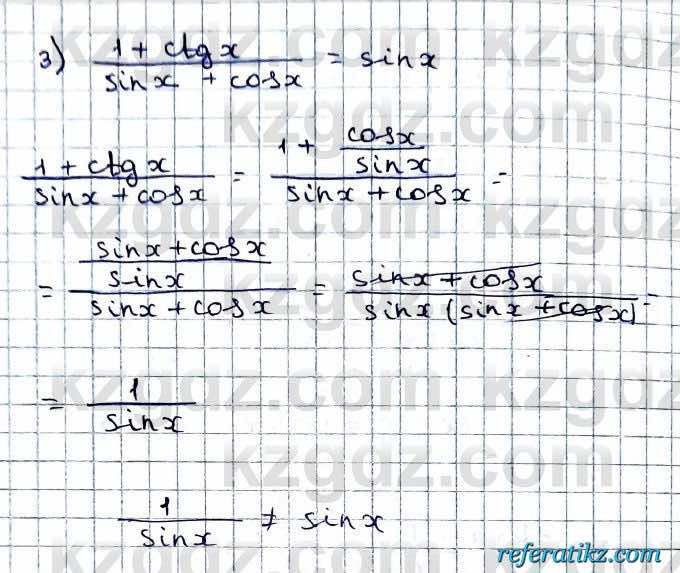 3) (1 + ctg x)/(sin x + cos x) = sin x
(1 + ctg x)/(sin x + cos x) = (1 + cos x/sin x)/(sin x + cos x) =
= ((sin x + cos x)/sin x)/(sin x + cos x) = (sin x + cos x)/(sin x (sin x + cos x)) =
= 1/sin x
1/sin x ≠ sin x
kzgdz.com
referatikz.com